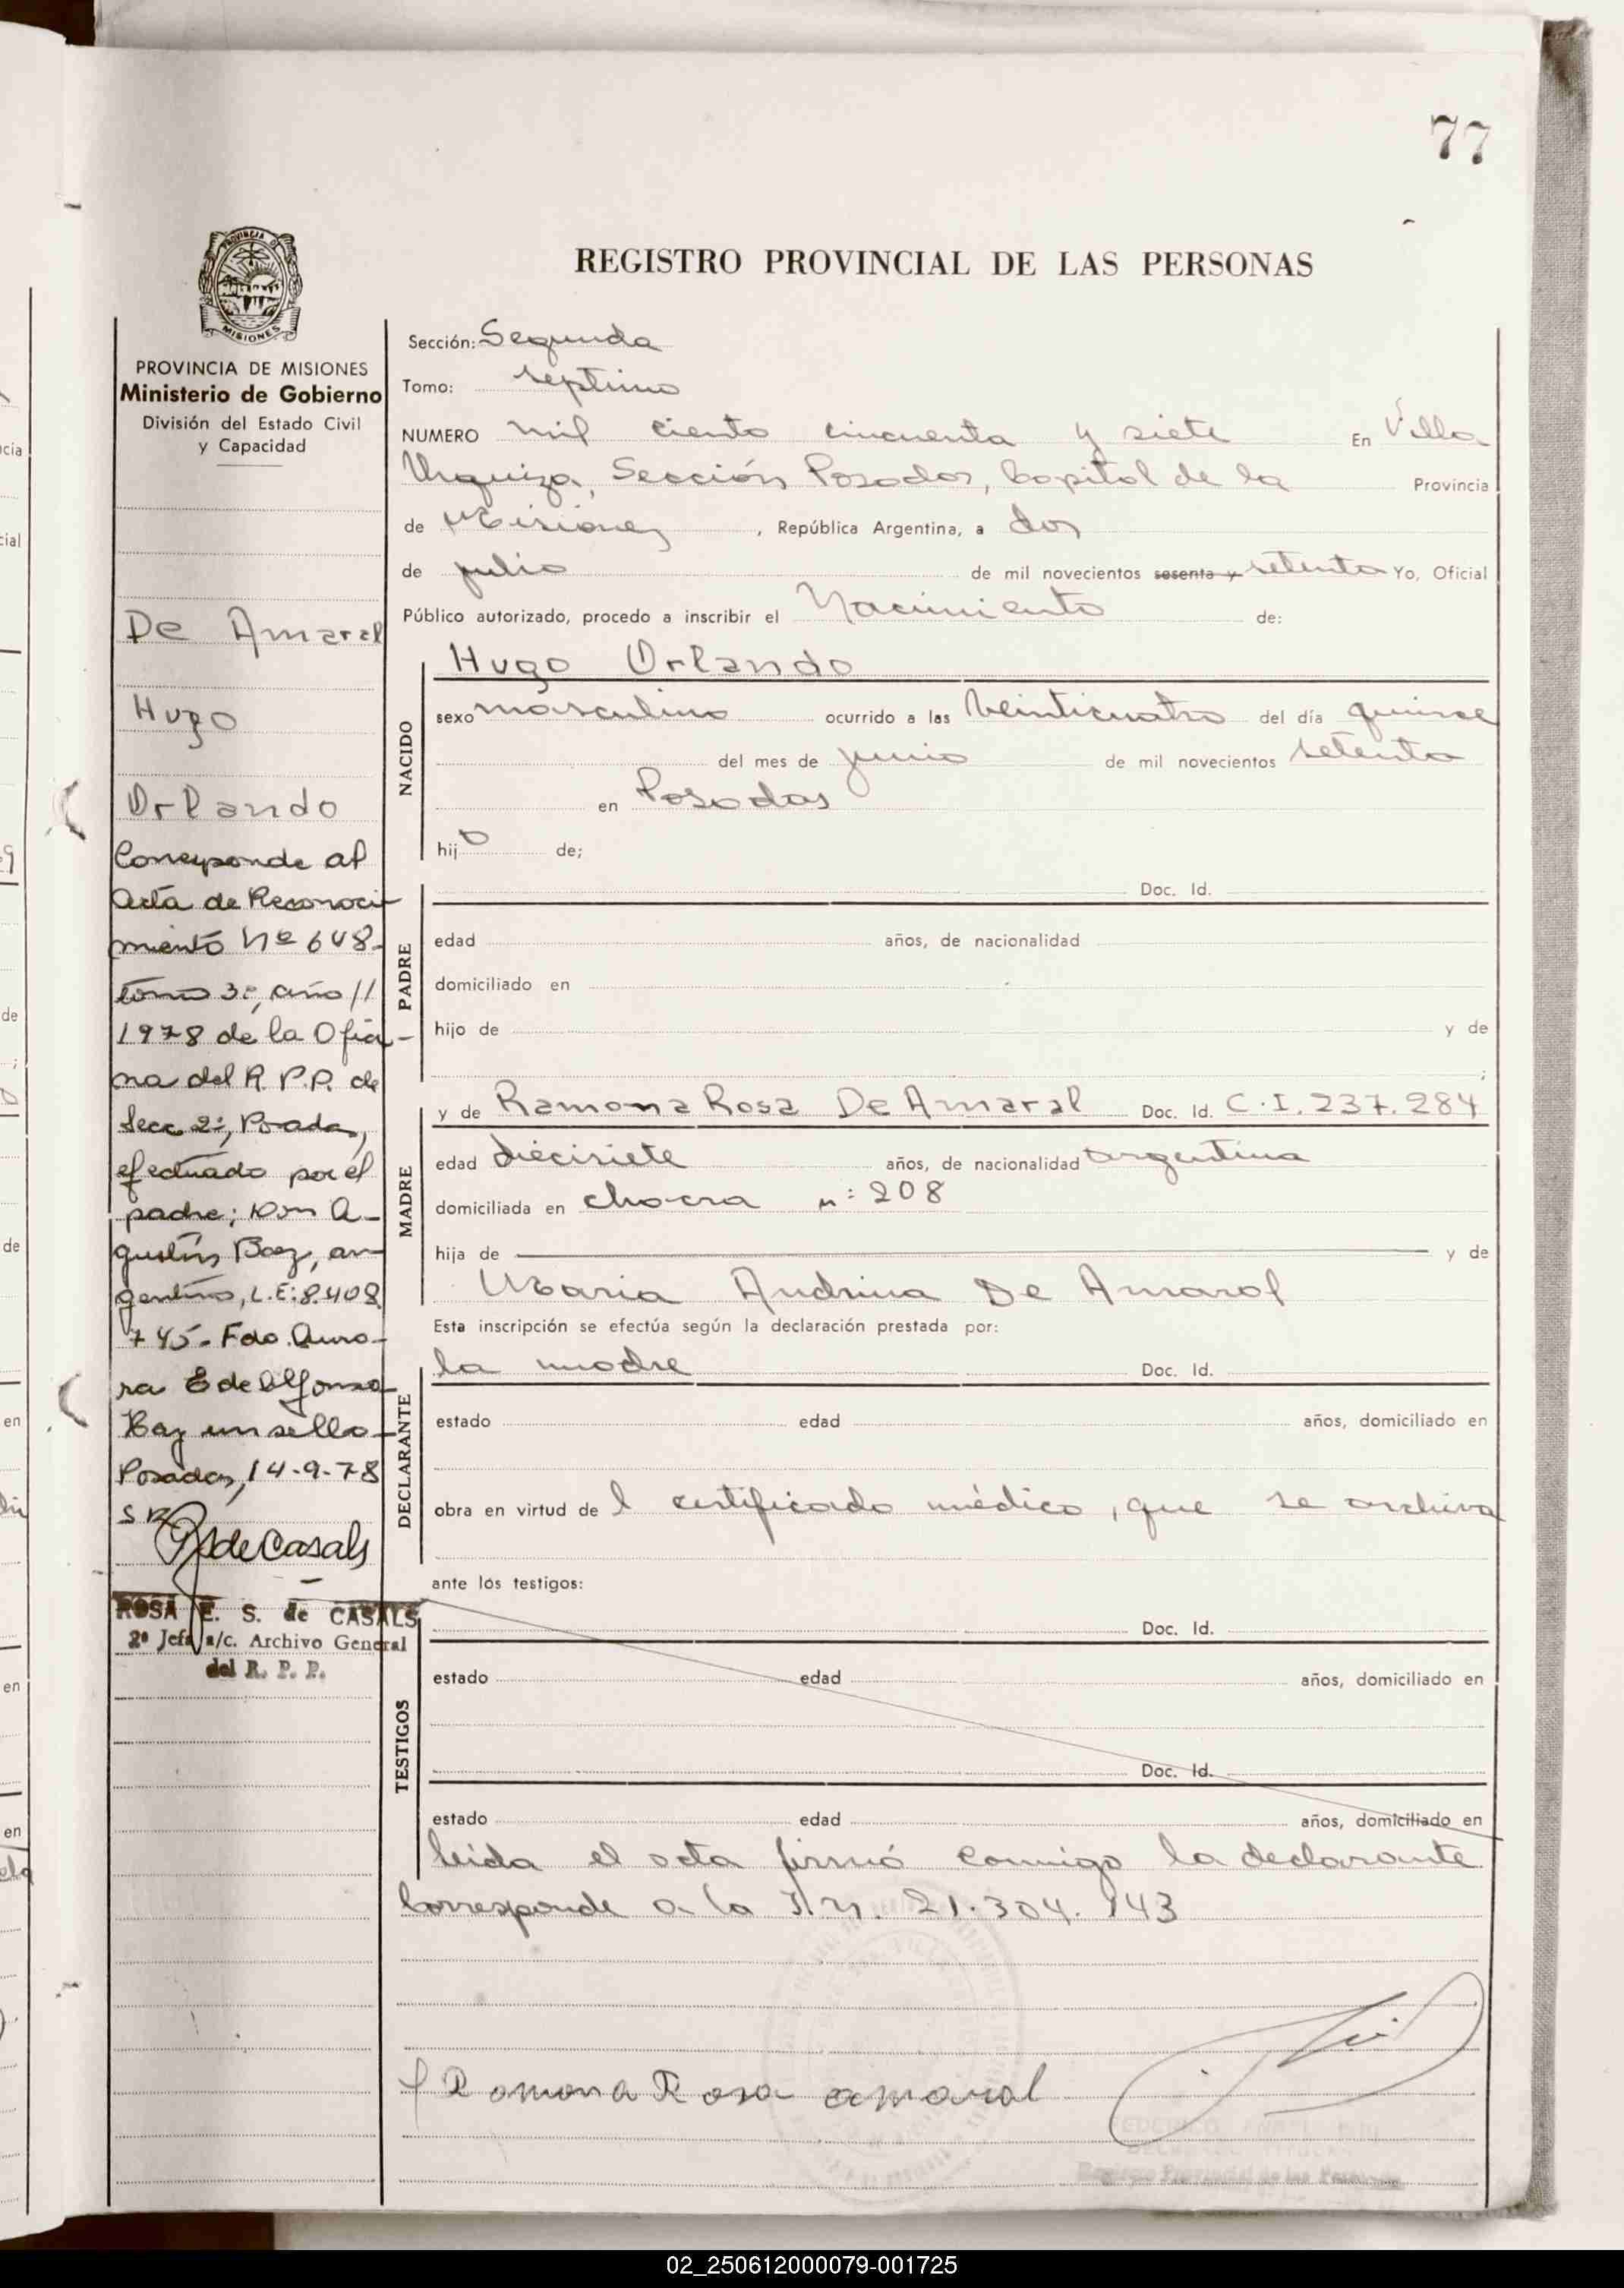 77
PROVINCIA DE
MISIONES
PROVINCIA DE MISIONES
Ministerio de Gobierno
División del Estado Civil
y Capacidad
De Amaral
Hugo
Orlando
Corresponde al
Acta de Reconoci-
miento Nº 648-
tomo 3º, año //
1978 de la Ofici-
na del R. P.P. de
Secc 2ª, Posadas,
efectuado por el
padre; Don A-
gustín Baez, ar-
gentino, L.E: 8.408.
745.- Fdo. Auro-
ra E de Alfonso
Hay un sello-
Posadas, 14-9-78
SR
RSdeCasals
ROSA E. S. de CASALS
2º Jefa a/c. Archivo General
del R. P. P.
REGISTRO PROVINCIAL DE LAS PERSONAS
Sección: Segunda
Tomo: septimo
NUMERO mil ciento cincuenta y siete En Villa
Urquiza, Sección Posadas, Capital de la Provincia
de Misiones, República Argentina, a dos
de julio de mil novecientos sesenta y setenta Yo, Oficial
Público autorizado, procedo a inscribir el Nacimiento de:
Hugo Orlando
NACIDO
sexo masculino ocurrido a las veinticuatro del día quince
del mes de junio de mil novecientos setenta
en Posadas
hijo de;
PADRE
Doc. Id.
edad años, de nacionalidad
domiciliado en
hijo de y de
;
MADRE
y de Ramona Rosa De Amaral Doc. Id. C.I. 237.284
edad diecisiete años, de nacionalidad argentina
domiciliada en chacra nº: 208
hija de y de
Maria Andrina De Amaral
Esta inscripción se efectúa según la declaración prestada por:
DECLARANTE
la madre Doc. Id.
estado edad años, domiciliado en
obra en virtud de l certificado médico, que se archiva
ante los testigos:
TESTIGOS
Doc. Id.
estado edad años, domiciliado en
Doc. Id.
estado edad años, domiciliado en
leida el acta firmó conmigo la declarante.
Corresponde a la I.N. 21.304.143
Ramona Rosa amaral
Registro Provincial de las Personas
02_250612000079-001725